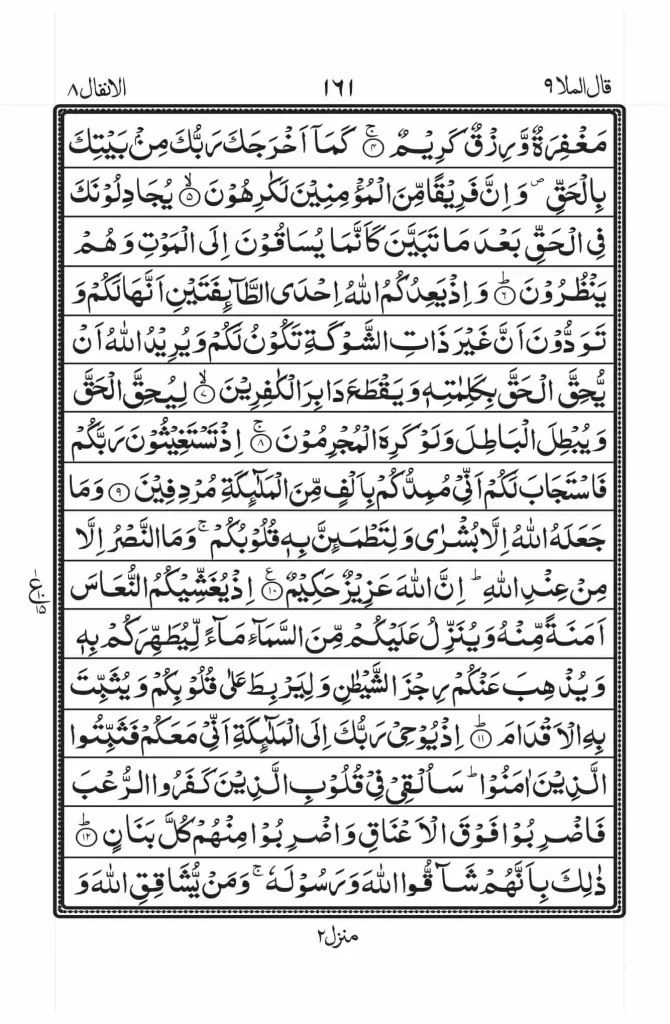 قال الملا ٩ ١٦١ الانفال ٨
مَغْفِرَةٌ وَّرِزْقٌ كَرِيْمٌ ۚ﴿۴﴾ كَمَاۤ اَخْرَجَكَ رَبُّكَ مِنْۢ بَيْتِكَ
بِالْحَقِّ ۪ وَاِنَّ فَرِيْقًا مِّنَ الْمُؤْمِنِيْنَ لَكٰرِهُوْنَ ۙ﴿۵﴾ يُجَادِلُوْنَكَ
فِى الْحَقِّ بَعْدَ مَا تَبَيَّنَ كَاَنَّمَا يُسَاقُوْنَ اِلَى الْمَوْتِ وَهُمْ
يَنْظُرُوْنَ ؕ﴿۶﴾ وَاِذْ يَعِدُكُمُ اللّٰهُ اِحْدَى الطَّآئِفَتَيْنِ اَنَّهَا لَكُمْ وَ
تَوَدُّوْنَ اَنَّ غَيْرَ ذَاتِ الشَّوْكَةِ تَكُوْنُ لَكُمْ وَيُرِيْدُ اللّٰهُ اَنْ
يُّحِقَّ الْحَقَّ بِكَلِمٰتِهٖ وَيَقْطَعَ دَابِرَ الْكٰفِرِيْنَ ۙ﴿۷﴾ لِيُحِقَّ الْحَقَّ
وَيُبْطِلَ الْبَاطِلَ وَلَوْ كَرِهَ الْمُجْرِمُوْنَ ۚ﴿۸﴾ اِذْ تَسْتَغِيْثُوْنَ رَبَّكُمْ
فَاسْتَجَابَ لَكُمْ اَنِّىْ مُمِدُّكُمْ بِاَلْفٍ مِّنَ الْمَلٰٓئِكَةِ مُرْدِفِيْنَ ﴿۹﴾ وَمَا
جَعَلَهُ اللّٰهُ اِلَّا بُشْرٰى وَلِتَطْمَئِنَّ بِهٖ قُلُوْبُكُمْ ۚ وَمَا النَّصْرُ اِلَّا
مِنْ عِنْدِ اللّٰهِ ؕ اِنَّ اللّٰهَ عَزِيْزٌ حَكِيْمٌ ﴿۱۰﴾ع اِذْ يُغَشِّيْكُمُ النُّعَاسَ
ع ١٠ ١٥
اَمَنَةً مِّنْهُ وَيُنَزِّلُ عَلَيْكُمْ مِّنَ السَّمَآءِ مَآءً لِّيُطَهِّرَكُمْ بِهٖ
وَيُذْهِبَ عَنْكُمْ رِجْزَ الشَّيْطٰنِ وَلِيَرْبِطَ عَلٰى قُلُوْبِكُمْ وَيُثَبِّتَ
بِهِ الْاَقْدَامَ ؕ﴿۱۱﴾ اِذْ يُوْحِىْ رَبُّكَ اِلَى الْمَلٰٓئِكَةِ اَنِّىْ مَعَكُمْ فَثَبِّتُوا
الَّذِيْنَ اٰمَنُوْا ؕ سَاُلْقِىْ فِىْ قُلُوْبِ الَّذِيْنَ كَفَرُوا الرُّعْبَ
فَاضْرِبُوْا فَوْقَ الْاَعْنَاقِ وَاضْرِبُوْا مِنْهُمْ كُلَّ بَنَانٍ ؕ﴿۱۲﴾
ذٰلِكَ بِاَنَّهُمْ شَآقُّوا اللّٰهَ وَرَسُوْلَهٗ ۚ وَمَنْ يُّشَاقِقِ اللّٰهَ وَ
منزل ٢